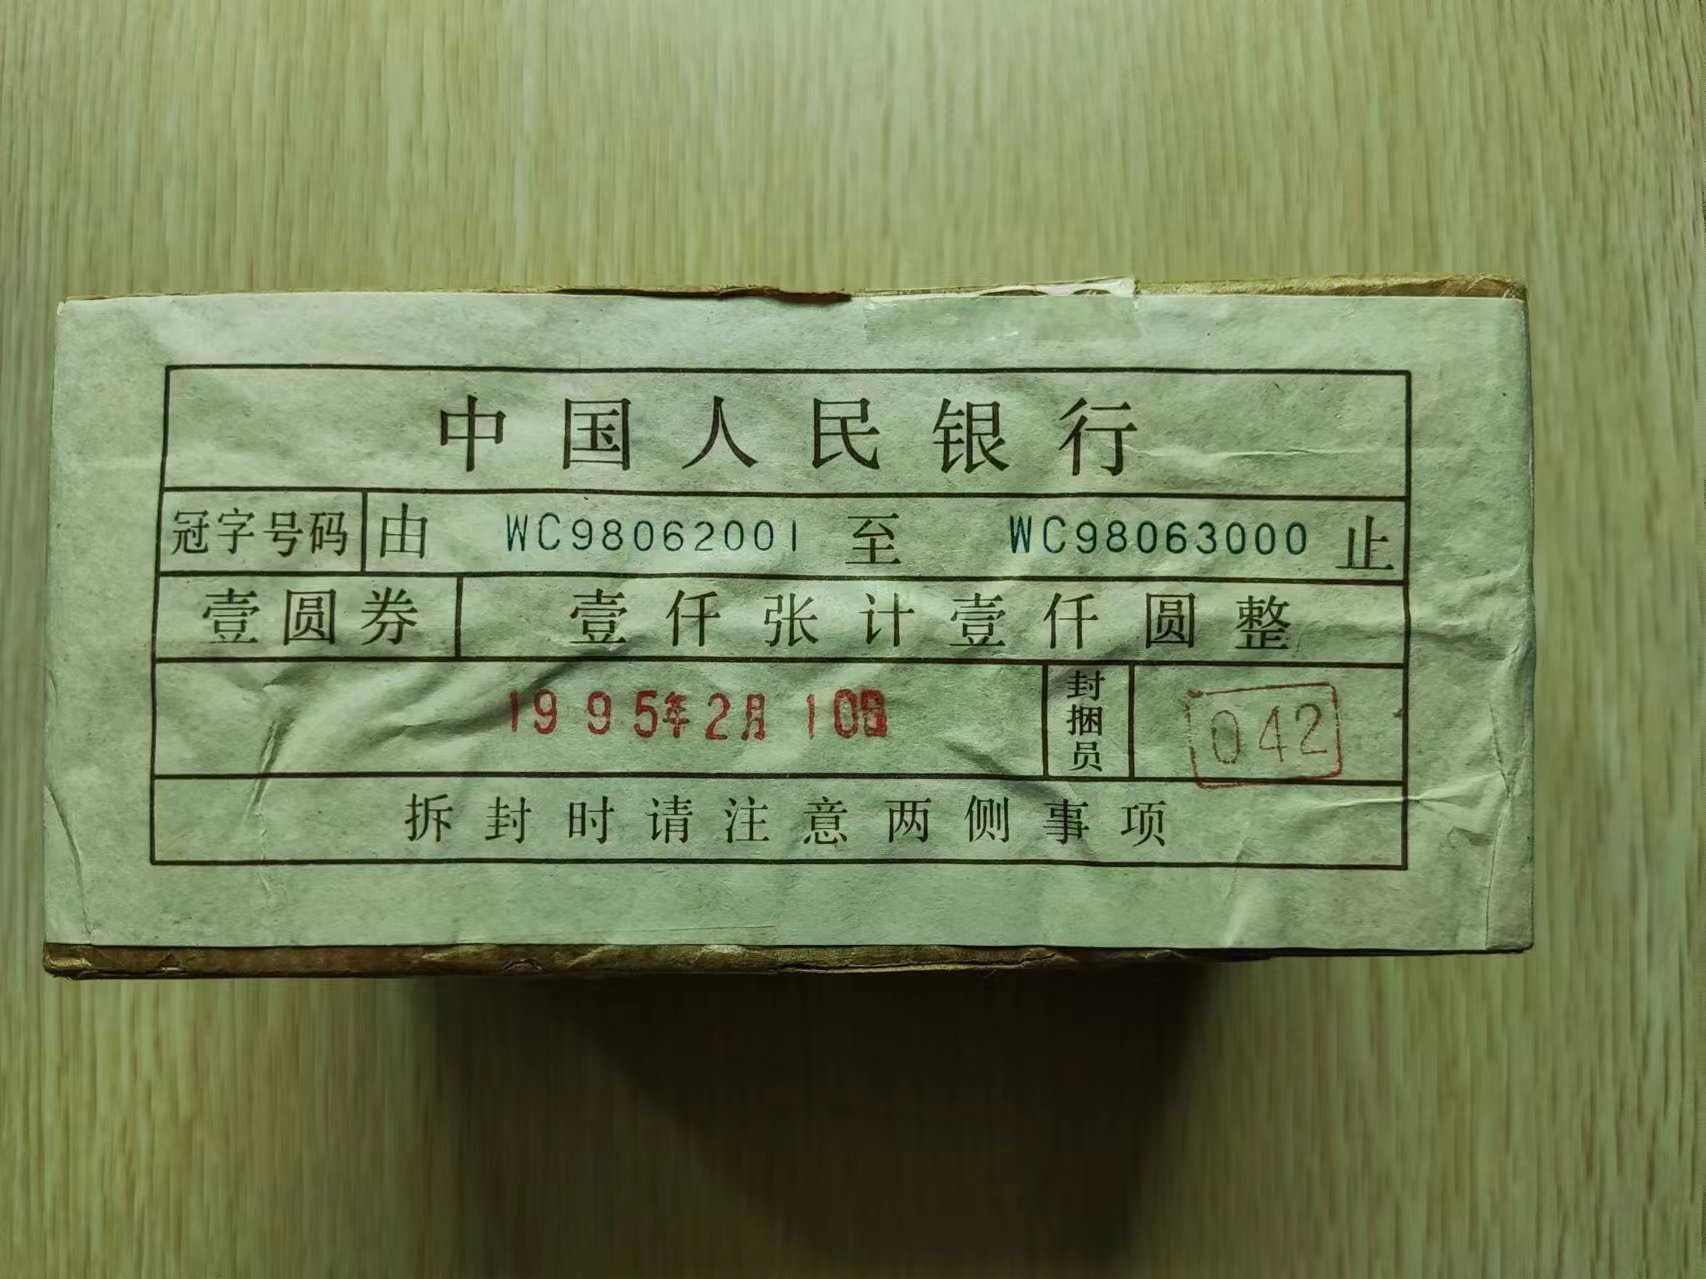 中国人民银行
冠字号码 由 WC98062001 至 WC98063000 止
壹圆券 壹仟张计壹仟圆整
1995年2月10日 封捆员 042
拆封时请注意两侧事项